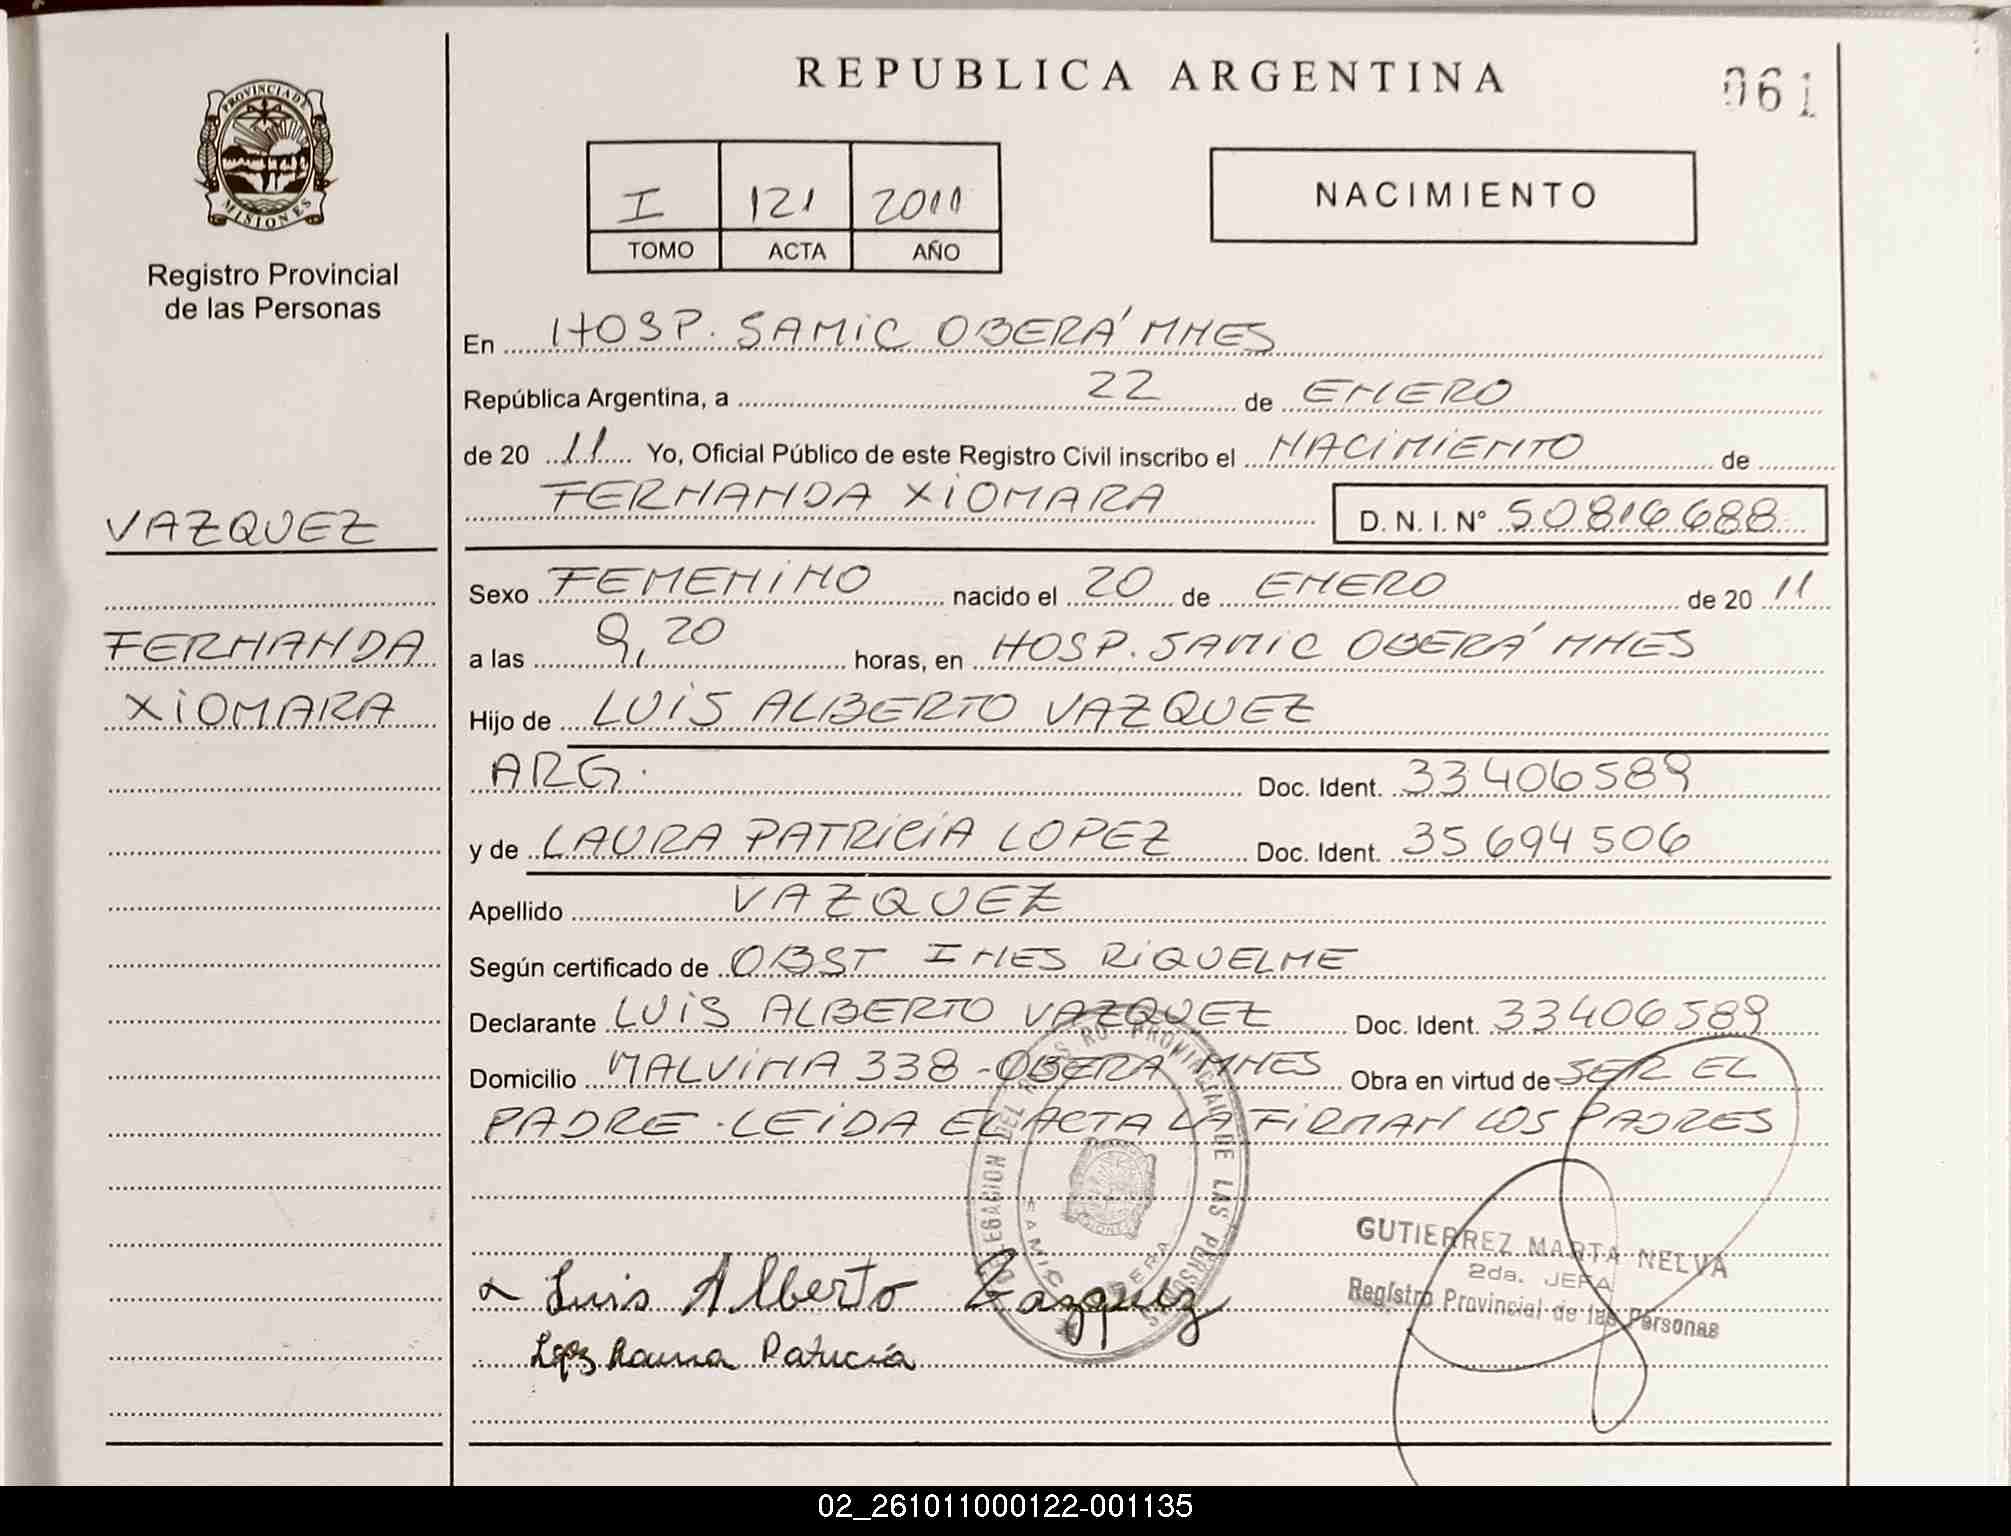 REPUBLICA ARGENTINA
061
PROVINCIA DE
MISIONES
Registro Provincial
de las Personas
I 121 2011
TOMO ACTA AÑO
NACIMIENTO
En HOSP. SAMIC OBERÁ MNES
República Argentina, a 22 de ENERO
de 20 11 Yo, Oficial Público de este Registro Civil inscribo el NACIMIENTO de
FERNANDA XIOMARA D. N. I. Nº 50816688
VAZQUEZ
FERNANDA
XIOMARA
Sexo FEMENINO nacido el 20 de ENERO de 20 11
a las 9,20 horas, en HOSP. SAMIC OBERÁ MNES
Hijo de LUIS ALBERTO VAZQUEZ
ARG. Doc. Ident. 33406589
y de LAURA PATRICIA LOPEZ Doc. Ident. 35694506
Apellido VAZQUEZ
Según certificado de OBST INES RIQUELME
Declarante LUIS ALBERTO VAZQUEZ Doc. Ident. 33406589
Domicilio MALVINA 338 - OBERA MNES Obra en virtud de SER EL
PADRE . LEIDA EL ACTA LA FIRMAN LOS PADRES
DELEGACION DEL REGISTRO PROVINCIAL DE LAS PERSONAS
SAMIC OBERA
GUTIERREZ MARTA NELVA
2da. JEFA
Registro Provincial de las Personas
Luis Alberto Vazquez
Lopez Laura Patricia
02_261011000122-001135